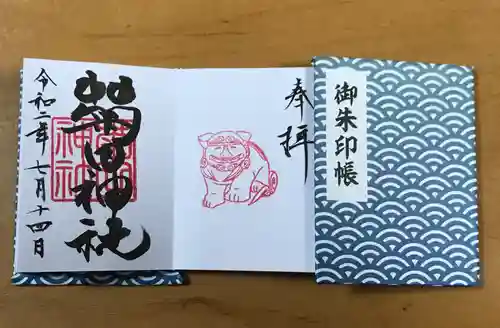 奉拝
田神社
神社
令和二年 七月十四日
御朱印帳